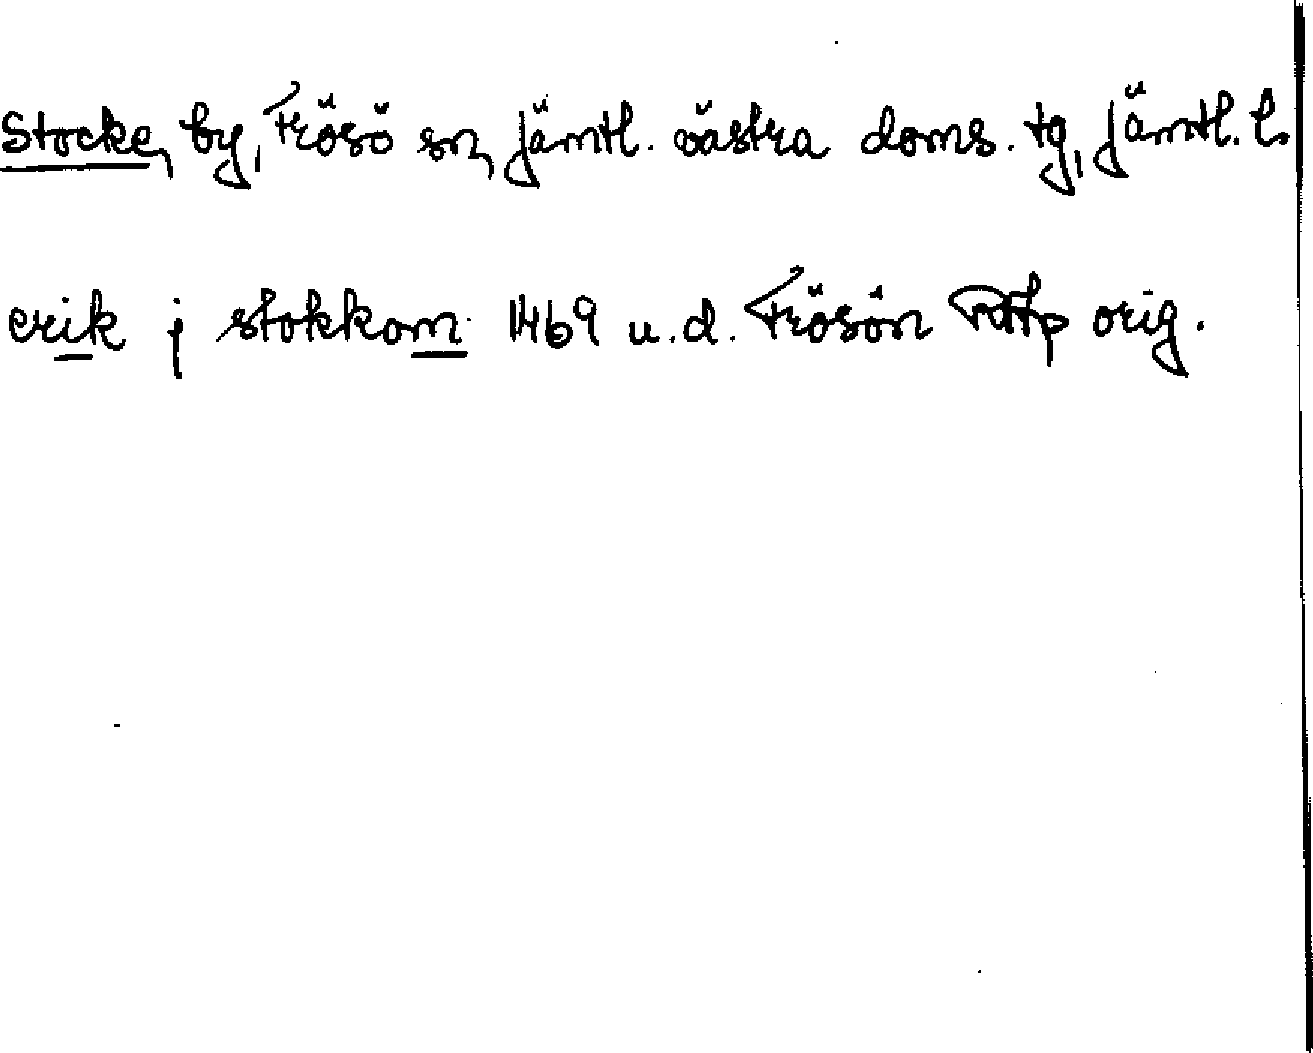 Stocke, by, Frösö sn, Jämtl. västra doms. tg, Jämtl. l.
erik j stokkom 1469 u.d. Frösön RAp orig.